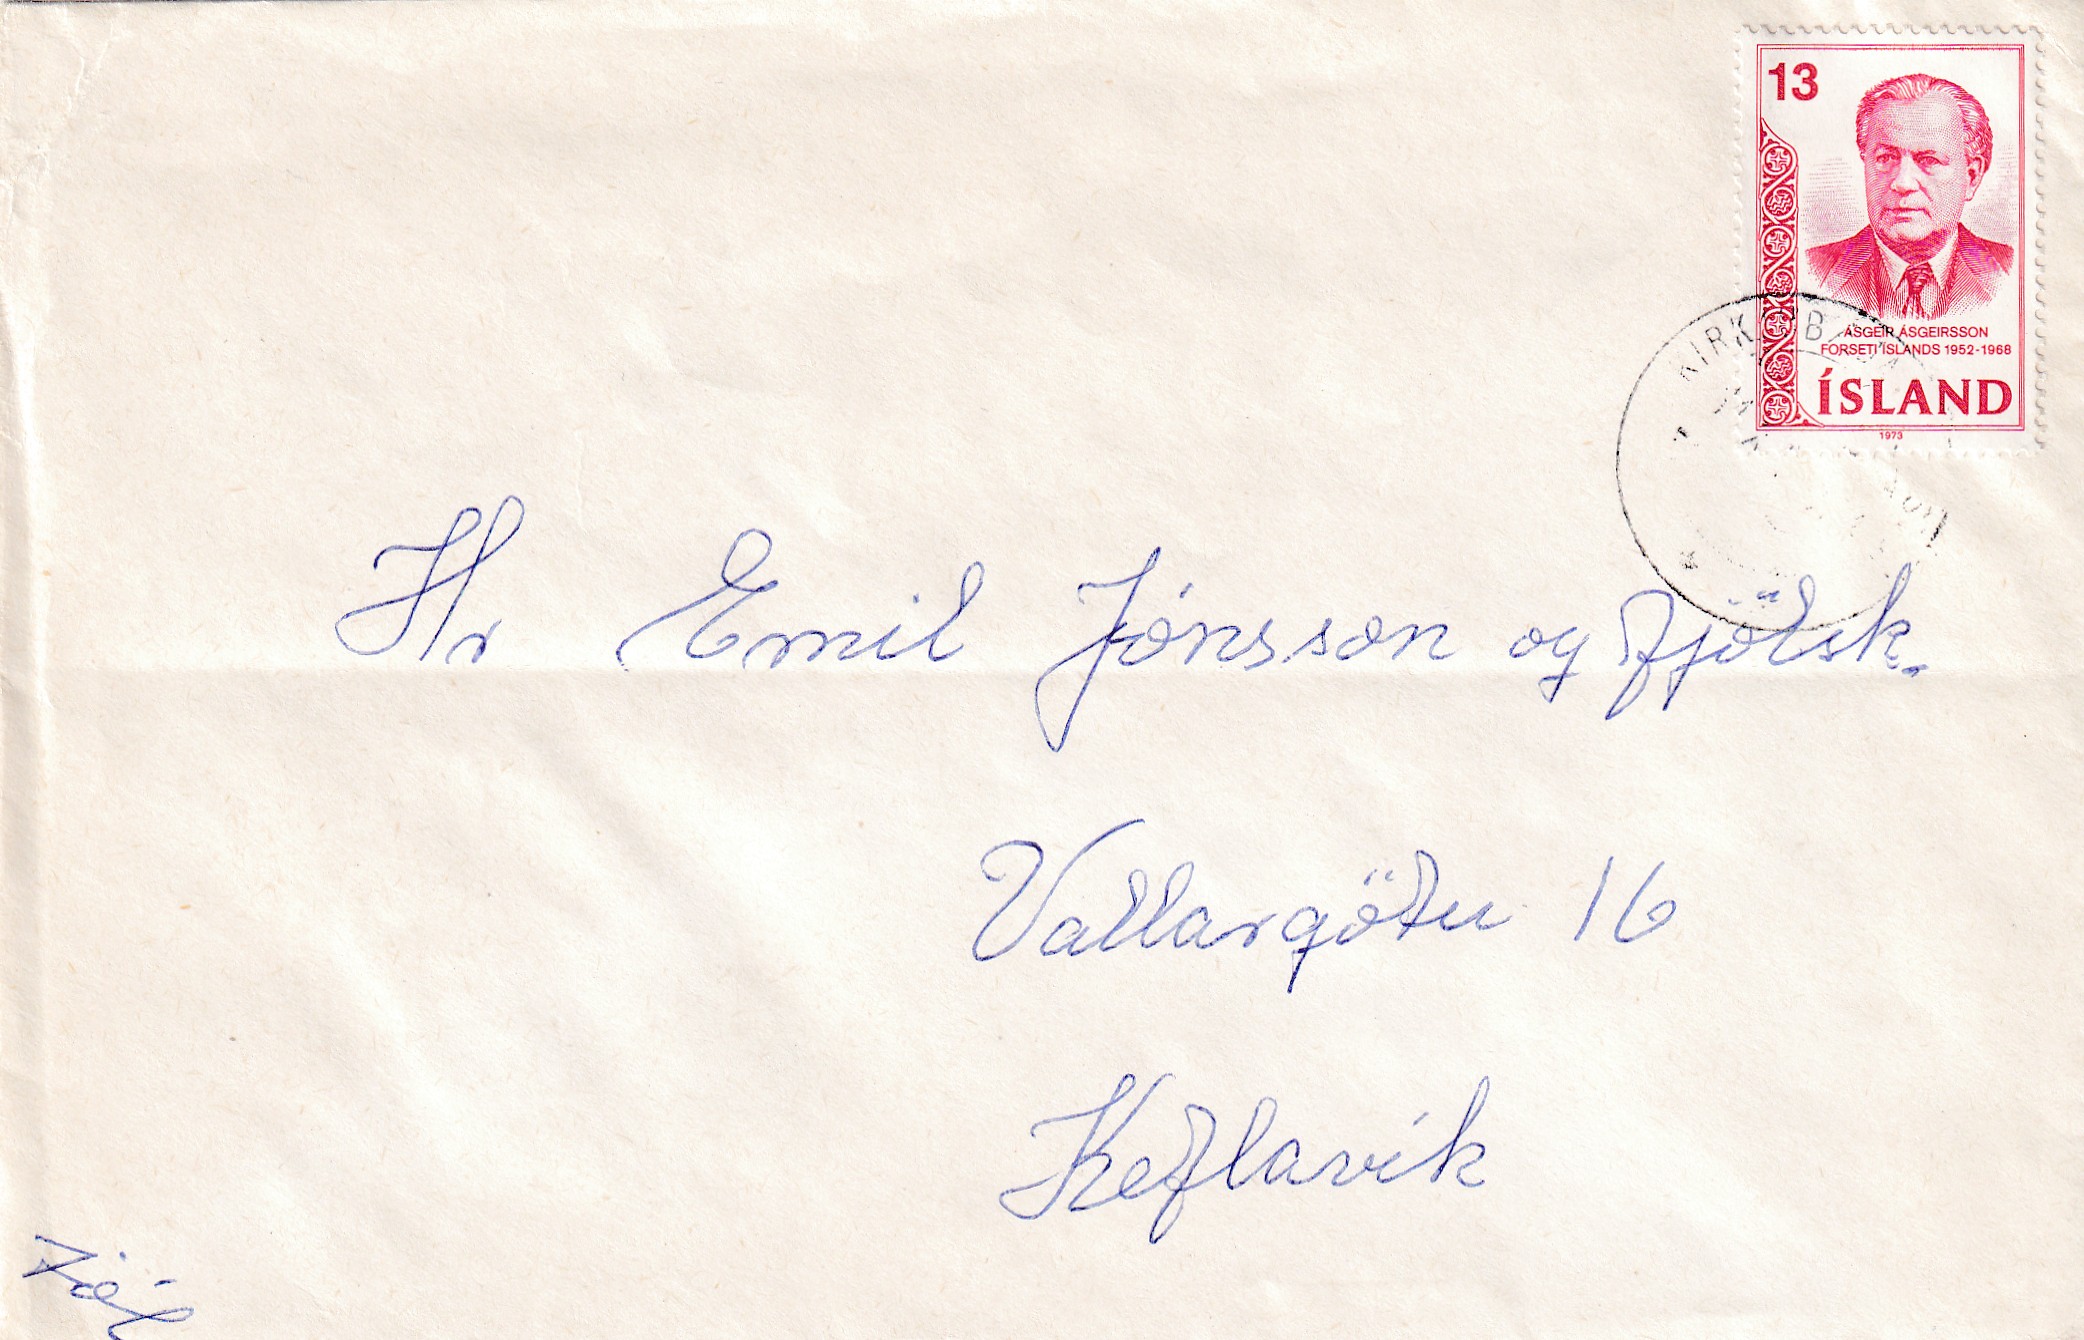 13
ÁSGEIR ÁSGEIRSSON
FORSETI ÍSLANDS 1952-1968
ÍSLAND
1973
Hr Emil Jónsson og fjölsk.
Vallargötu 16
Keflavík